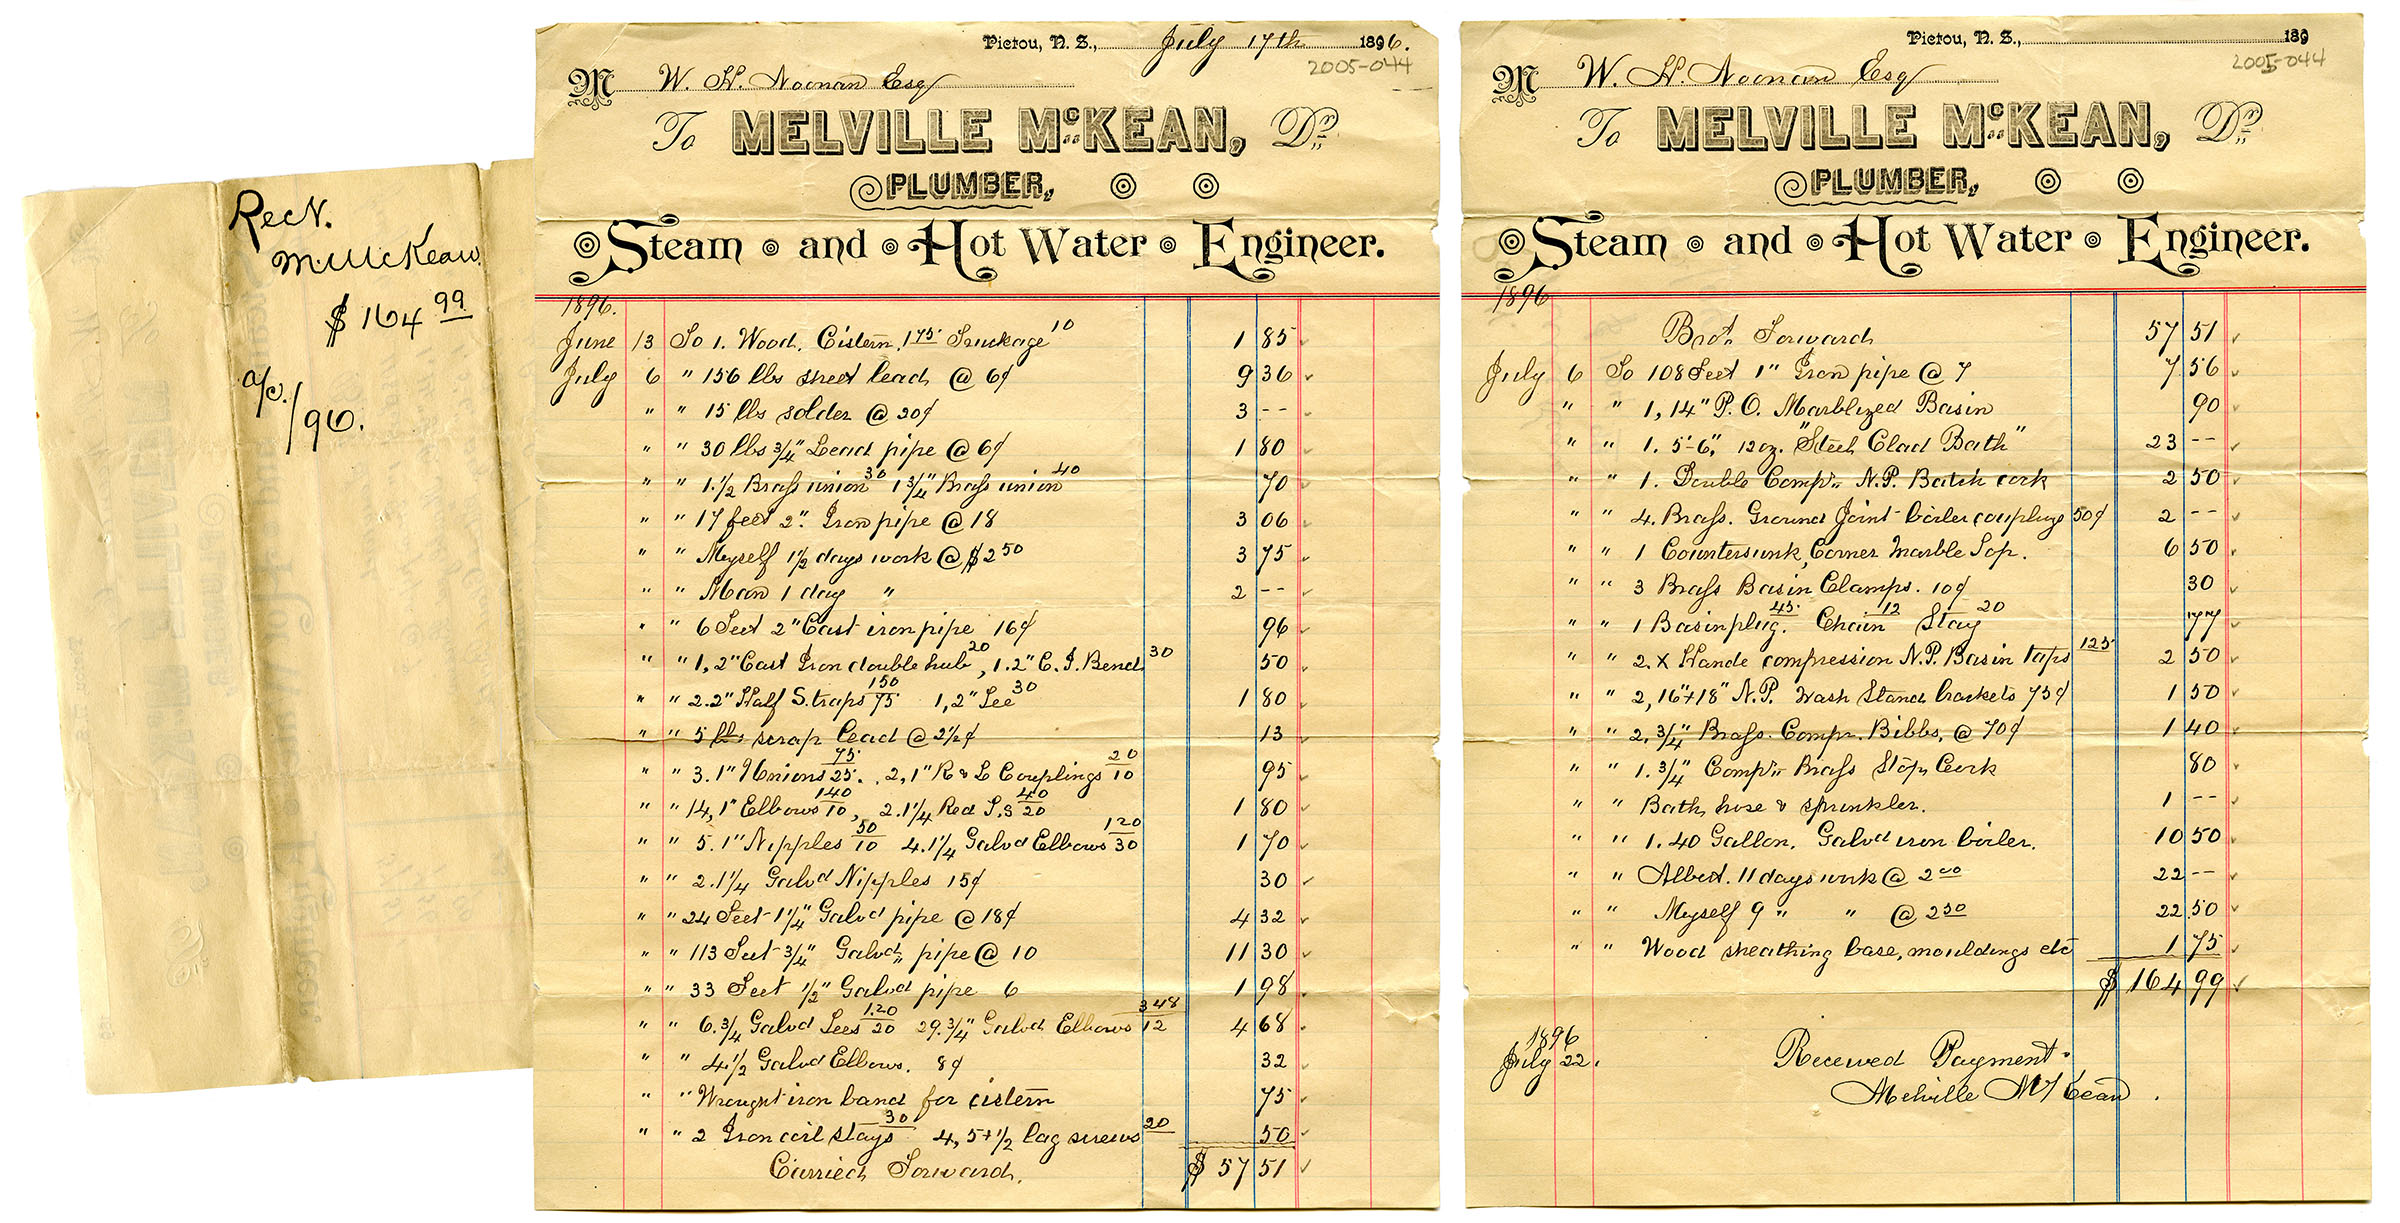 Rec'd.
M. McKean.
$ 164 99
a/c.
/96.
Pictou, N. S., July 17th 1896.
2005-044
M W. H. Noonan Esq
To MELVILLE McKEAN, Dr.
PLUMBER,
Steam and Hot Water Engineer.
1896.
June 13 To 1. Wood. Cistern. 1 75 Truckage 10 1 85
July 6 " 156 lbs sheet lead @ 6¢ 9 36
" " 15 lbs solder @ 20¢ 3 --
" " 30 lbs 3/4" Lead pipe @ 6¢ 1 80
" " 1. 1/2 Brass union 30 1 3/4" Brass union 40 70
" " 17 feet 2". Iron pipe @ 18 3 06
" " Myself 1 1/2 days work @ $2 50 3 75
" " Man 1 day " 2 --
" " 6 Feet 2" Cast iron pipe 16¢ 96
" " 1, 2" Cast Iron double hub 20, 1. 2" C. I. Bend 30 50
" " 2. 2" Half S. traps 150/75 1, 2" Tee 30 1 80
" " 5 lbs scrap lead @ 2 1/2¢ 13
" " 3. 1" Unions 75/25. . 2, 1" R & L Couplings 20/10 95
" " 14, 1" Elbows 140/10, 2. 1 1/4 Red T.s 40/20 1 80
" " 5. 1" Nipples 50/10 4. 1 1/4 Galvd Elbows 120/30 1 70
" " 2. 1 1/4 Galvd Nipples 15¢ 30
" " 24 Feet 1 1/4" Galvd pipe @ 18¢ 4 32
" " 113 Feet 3/4" Galvd pipe @ 10 11 30
" " 33 Feet 1/2" Galvd pipe 6 1 98
" " 6. 3/4 Galvd Tees 120/20 29. 3/4" Galvd Elbows 348/12 4 68
" " 4 1/2 Galvd Elbows. 8¢ 32
" " Wrought iron band for cistern 75
" " 2 Iron coil stays 30 4, 5 + 1/2 lag screws 20 50
Carried Forward. $ 57 51
Pictou, N. S., 189
2005-044
M W. H. Noonan Esq
To MELVILLE McKEAN, Dr.
PLUMBER,
Steam and Hot Water Engineer.
1896
Brot. Forward 57 51
July 6 To 108 Feet 1" Iron pipe @ 7 7 56
" " 1, 14" P. O. Marblized Basin 90
" " 1. 5'-6", 12 oz. "Steel Clad Bath" 23 --
" " 1. Double Comp'n N.P. Bath cock 2 50
" " 4. Brass. Ground Joint boiler couplings 50¢ 2 --
" " 1 Countersunk, Corner Marble Top. 6 50
" " 3 Brass Basin Clamps. 10¢ 30
" " 1 Basin plug. 45. Chain 12 Stay 20 77
" " 2. X Hande compression N.P. Basin taps 125 2 50
" " 2, 16"+18" N.P. Wash Stand brackets 75¢ 1 50
" " 2, 3/4" Brass. Compr. Bibbs. @ 70¢ 1 40
" " 1. 3/4" Comp'n Brass Stop Cock 80
" " Bath, hose & sprinkler. 1 --
" " 1. 40 Gallon. Galvd iron boiler. 10 50
" " Albert. 11 days work @ 2 00 22 --
" " Myself 9 " " @ 2 50 22 50
" " Wood sheathing base, mouldings etc 1 75
$ 164 99
1896
July 22. Received Payment.
Melville McKean.